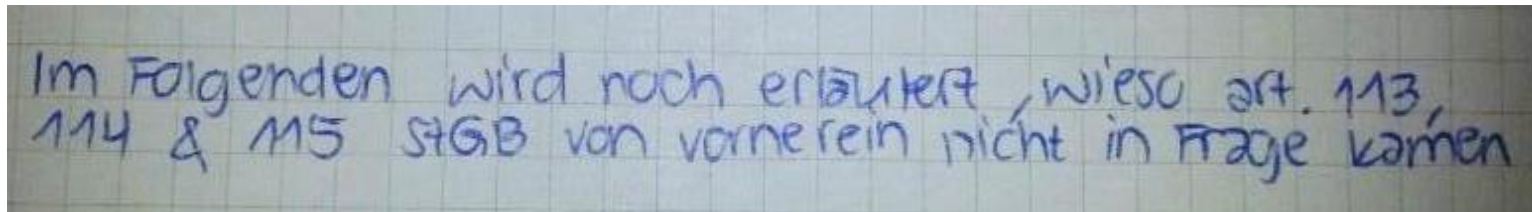 Im Folgenden wird noch erläutert, wieso art. 113,
114 & 115 StGB von vornerein nicht in Frage kamen